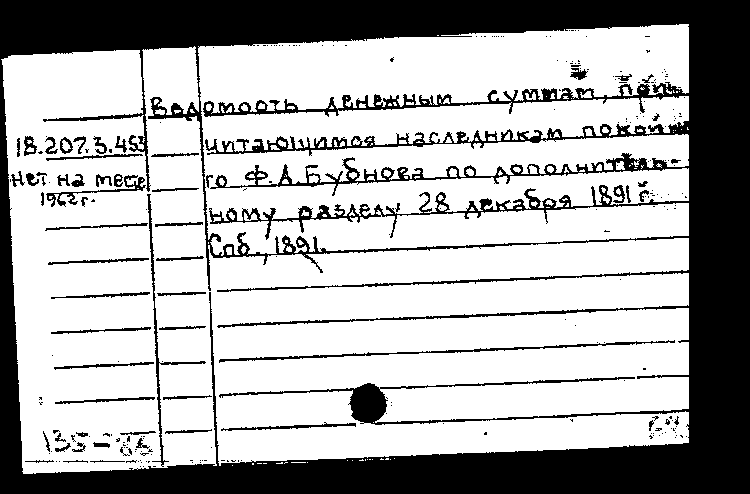 Ведомость денежным суммам, при-
18.207.3.453 читающимся наследникам покойно
нет на месте го Ф.А.Бубнова по дополнитель-
1962 г. ному разделу 28 декабря 1891 г.
Спб., 1891.
135-86